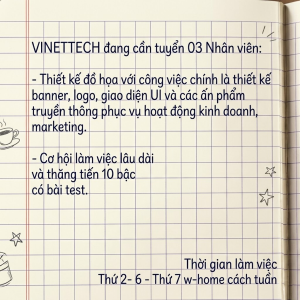 VINETTECH đang cần tuyển 03 Nhân viên:
- Thiết kế đồ họa với công việc chính là thiết kế
banner, logo, giao diện UI và các ấn phẩm
truyền thông phục vụ hoạt động kinh doanh,
marketing.
- Cơ hội làm việc lâu dài
và thăng tiến 10 bậc
có bài test.
Thời gian làm việc
Thứ 2- 6 - Thứ 7 w-home cách tuần